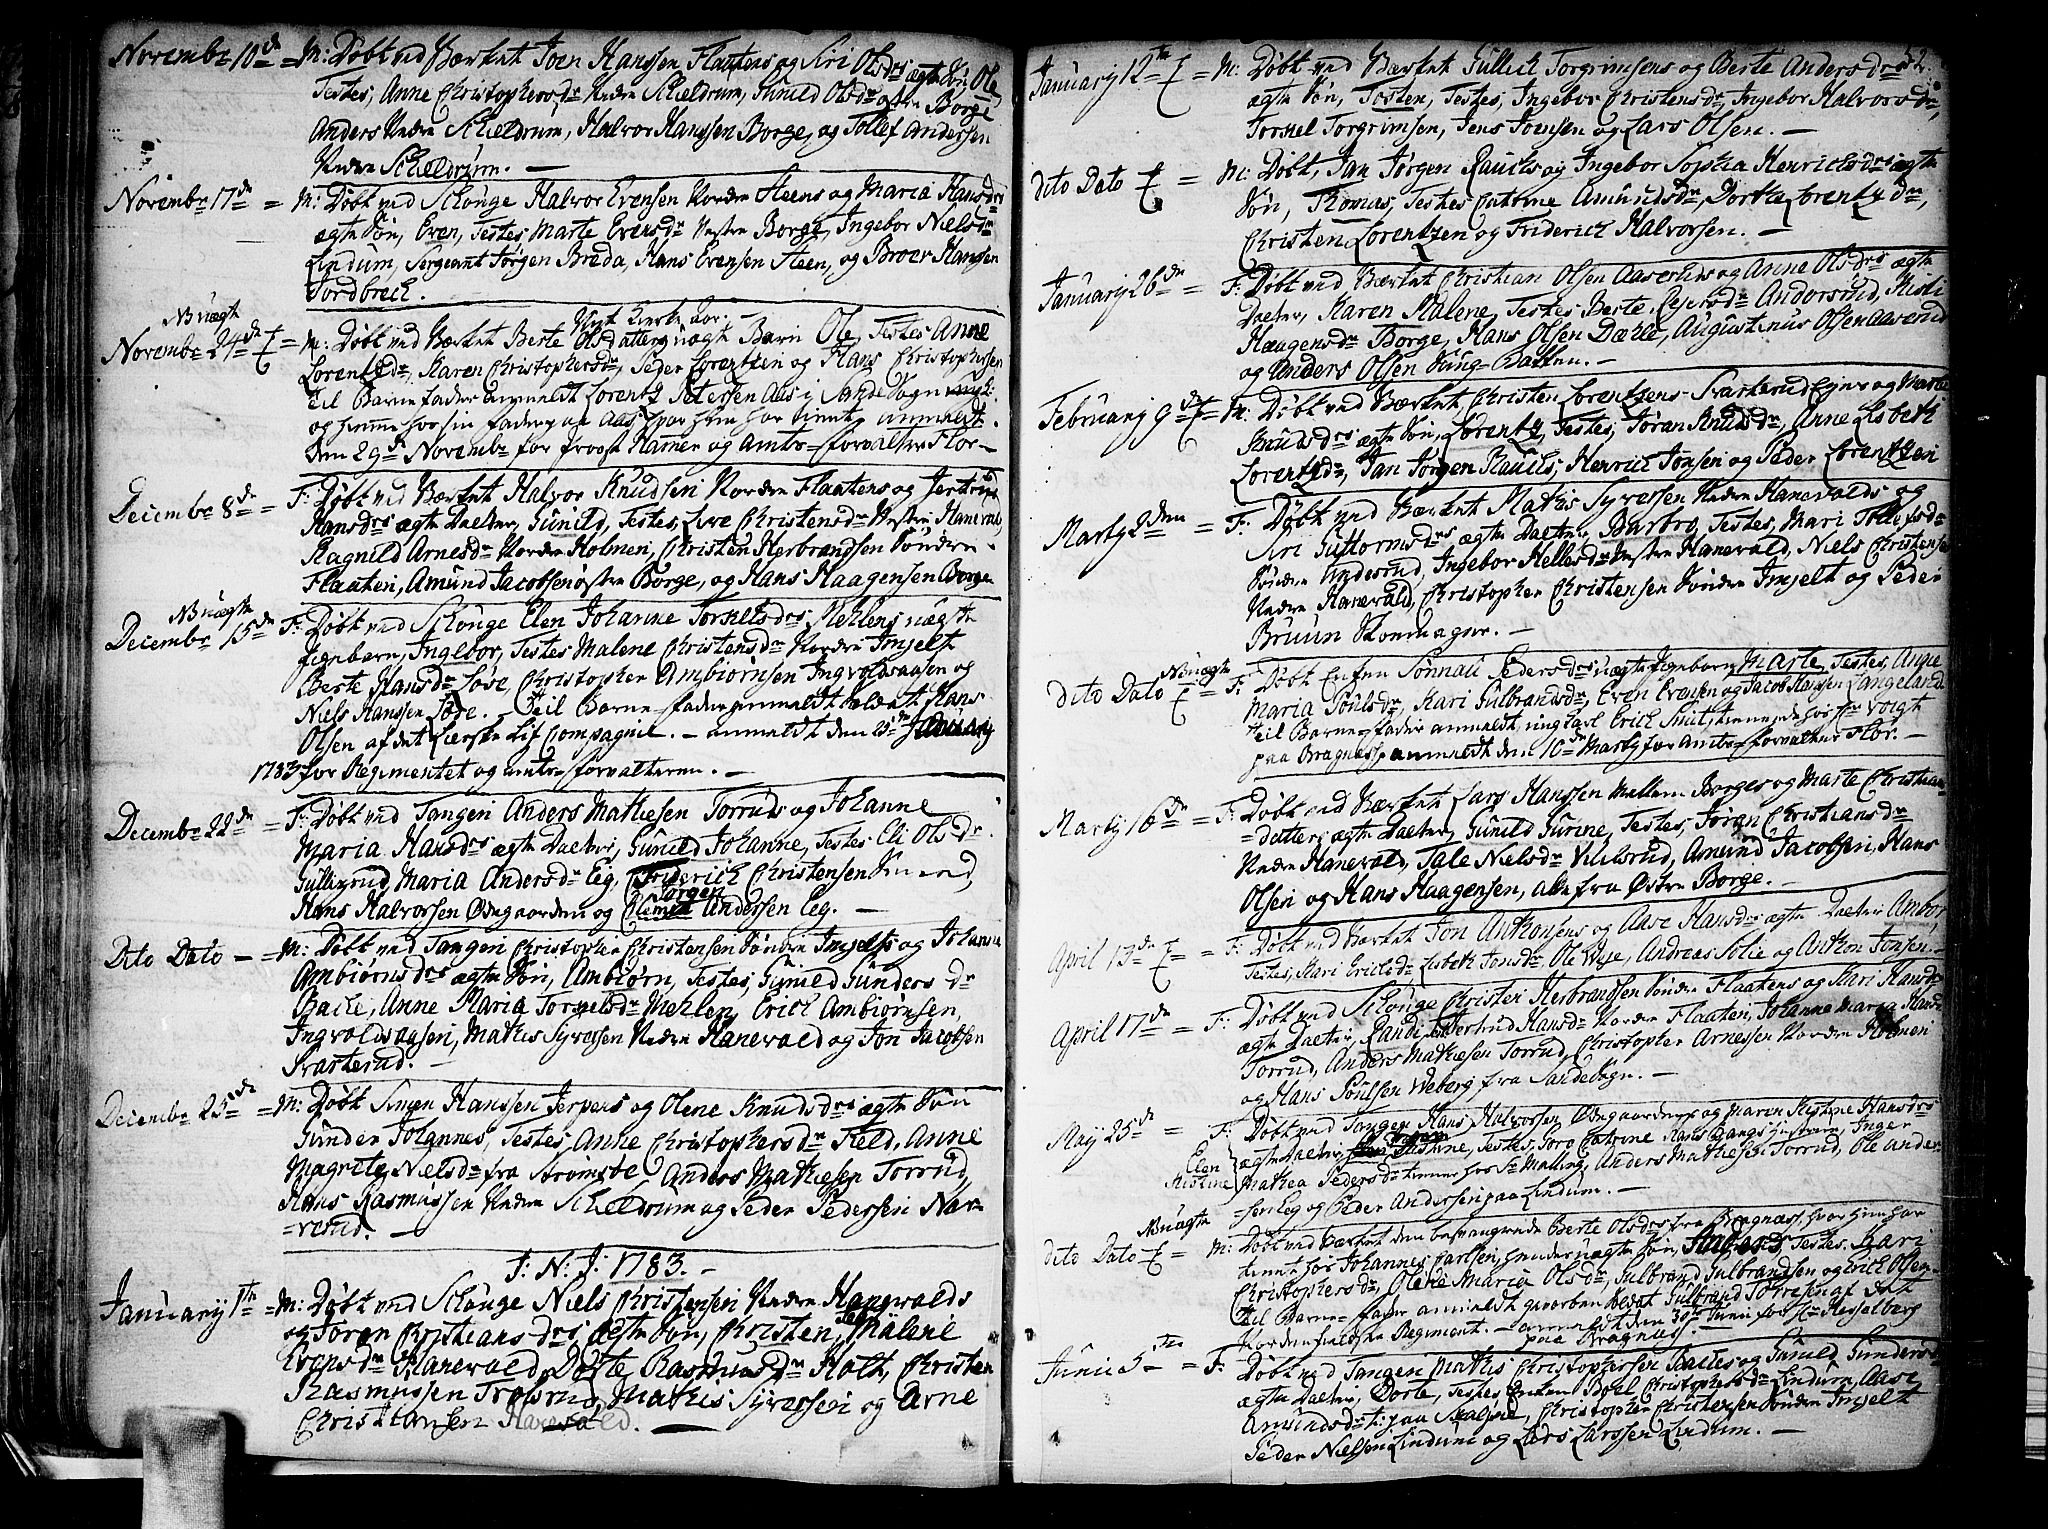 Novembr 10de = M: Døbt ved Værket Joen Hanssen Flaatens og Siri Olsdrs ægte Søn Ole,
Testes, Anne Christophersdr Nedre Schieldrum, Gunild Olsdr østre Borge
Anders Nedre Schieldrum, Halvor Hanssen Borge, og Tollef Andersen
Nedre Schieldrum. —
Novembr 17de = M: Døbt ved Schouge Halvor Evensen Nordre Steens og Maria Hansdrs
ægte Søn, Even, Testes Marte Evensdr Vestre Borge, Ingebor Nielsdr
Lindum, Sergeant Jørgen Breda, Hans Evensen Steen, og Broer Hansen
Tordbreck.
NB uægte
Novembr 24de E = M: Døbt ved Værket Berte Olsdatters uægte Barn Ole, Testes Anne
Lorentzdr, Karen Christophersdr, Peder Lorentzen og Hans Christophersen
til Barnefader anmeldt Lorentz Petersen Aas i Sande Sogn
og hiemme hos sin fader paa Aas, hvor hun har tient, anmeldt
den 29de Novembr for Provst Hammer og Amts-forvalter Flor —
Decembr 8de = F: Døbt ved Værket Halvor Knudsen Nordre Flaatens og Jertrud
Hansdrs ægte Daatter, Gunild, Testes, Live Christensdr Vestre Hanevald,
Ragnild Arnesdr Nordre Holmen, Christen Herbrandsen Søndre
Flaaten, Amund Jacobsen østre Borge, og Hans Haagensen Borge
NB uægte
Decembr 15de F: Døbt ved Schouge Elen Johanne Torkelsdrs Mehlens uægte
Pigebarn, Ingebor, Testes Malene Christensdr Nordre Imjelt
Berte Hansdr Søre, Christopher Ambiørnsen Ingvoldsaasen og
Niels Hanssen Søre. — til Barne-fader anmeldt Soldat Hans
Olsen af det Lierske Lif Compagnie. — anmeldt den 25de January
1783 for Regimentet og amts-forvalteren. —
Decembr 22de = F: Døbt ved Tangen Anders Mathesen Torruds og Johanne
Maria Hansdrs ægte Daatter, Gunild Johanne, Testes Eli Olsdr
Gulliksrud, Maria Andersdr Eeg, Friderich Christensen
Hans Halvorsen Ødegaarden og Jørgen Andersen Eeg. —
Dito Dato — = M: Døbt ved Tangen Christopher Christensen Søndre Imjelts og Johanne
Ambiørnsdrs ægte Søn, Ambiørn, Testes, Gunild Gundersdr
Baile, Anne Maria Torkelsdr Mehlen, Erich Ambiørnsen,
Ingvoldsaasen, Mathis Syversen Nedre Hanevald og Jon Jacobsen
Svarterud. —
Decembr 25de = M: Døbt Simen Hanssen Jerpens og Olene Knudsdrs ægte Søn
Gunder Johannes, Testes Anne Christophersdr Field, Anne
Magrete Nielsdr fra Strømsøe, Anders Mathesen Torrud,
Hans Rasmussen Nedre Schieldrum og Peder Pedersen Nor-
=verud. —
J: N: J: 1783. —
January 1te = M: Døbt ved Schouge Niels Christensen Nedre Hanevalds
og Jøran Christiansdrs ægte Søn, Christen, Malene
Evensdr Hanevald, Dorte Rasmusdr Holt, Christen
Rasmussen Trolsrud, Mathis Syversen og Arne
Christiansen Hanevald. —
52.
January 12te E = M: Døbt ved Værket Gullich Torgrimsens og Berte Andersdrs
ægte Søn, Tosten, Testes, Ingebor Christensdr, Ingebor Halvorsdr,
Torkel Torgrimsen, Jens Joensen og Lars Olsen. —
Dito Dato E = M: Døbt, Jan Jørgen Rauchs og Ingebor Sophia Henrichsdrs ægte
Søn, Thomas, Testes Catrine Amundsdr, Dorthe Lorentzdr,
Christen Lorentzen og Friderich Halvorsen. —
January 26de = F: Døbt ved Værket Christian Olsen Aaseruds og Anne Olsdrs ægte
Daatter, Karen Malene, Testes Berte Cejersdr Andorsrud, Kisti
Haagensdr Borge, Hans Olsen Dæhle, Augustinus Olsen Aaserud
og Anders Olsen Jung-Batten. —
February 9de E = M: Døbt ved Værket Christen Lorentzens Svarterud Eyer og Marte
Knudsdrs ægte Søn, Lorentz, Testes, Jøran Knudsdr, Anne Lisbeth
Lorentzdr, Jan Jørgen Rauchs, Henrich Jonsen og Peder Lorentzen
Marty 2den = F: Døbt ved Værket Mathis Syversen Nedre Hanevalds og
Siri Guttormsdrs ægte Daatter, Barbro, Testes, Mari Tollefsdr
Søndre Anderud, Ingebor Hellesdr Vestre Hanevald, Niels Christensen
Nedre Hanevald, Christopher Christensen Søndre Imjelt og Peder
Bruun Skomager. —
NB uægte
dito Dato E = F: Døbt Enken Sønnau Pedersdrs uægte Pigebarn, Marte, Testes, Anne
Maria Poulsdr, Kari Gulbrandsdr, Even Evensen og Jacob Hanssen Langeland
til Barne-fader anmeldt ung Karl Erich Knut, tienende hos Hr Voigt
paa Bragnæss, anmeldt den 10de Marty for Amts-forvalter Flor. —
Marty 16de = F: Døbt ved Værket Lars Hanssen Mellem Borges og Marte Christian-
=datters ægte Daatter, Gunild Gurine, Testes, Jøran Christiansdr
Nedre Hanevald, Tale Nielsdr Vilelsrud, Amund Jacobsen, Hans
Olsen og Hans Haagensen, alle fra Østre Borge. —
April 13de E = F: Døbt ved Værket Jon Anthonsens og Aase Hansdrs ægte Daatter Ambor,
Testes, Kari Erichsdr Lisbeth Jonsdr Ole Weje, Andreas Solie og Anthon Jonsen. —
April 17de = F: Døbt ved Schouge Christen Herbrandsen Søndre Flaatens og Kari Hansdrs
ægte Daatter, Randi, Giertrud Hansdr Nordre Flaaten, Johanne Maria Hansdr
Torrud, Anders Mathesen Torrud, Christopher Arnesen Nordre Holmen
og Hans Poulsen Weberg fra Sandesogn. —
May 25de = F: Døbt ved Tangen Hans Halvorsen Ødegaardens og Maren Kistine Hansdrs
Elen
Kistine
ægte Daatter, Testes, Soro Catrine Hans Bangs hustrue, Inger
Mathea Pedersdr tienner hos Hr Malling, Anders Mathesen Torrud, Ole Ander-
=sen Eeg og Peder Andersen paa Lindum. —
NB uægte
dito Dato E = M: Døbt ved Værket den besvangrede Berte Olsdrs fra Bragnæss, hvor hun har
tient hos Johannes Carlsen, hendes uægte Søn, Anders, Testes. Kari
Christophersdr, Olene Maria Olsdr, Gulbrand Gulbrandsen og Erich Olsen. —
til Barne-fader anmeldt gevorben Soldat Gulbrand af det
Nordenfieldske Regiment. — anmeldt den 30te Juni for Hr Hesselberg
paa Bragnæss.
Juni 5te = F: Døbt ved Tangen Mathis Christophersen Bailes og Gunild Gundersdrs
ægte Daatter, Dorte, Testes, Enken Boel Christophersdr Lindum, Aase
Amundsdr paa Skalstad, Christopher Christensen Søndre Imjelt
Peder Nielsen Lindum og Lars Larssen Lindum. —